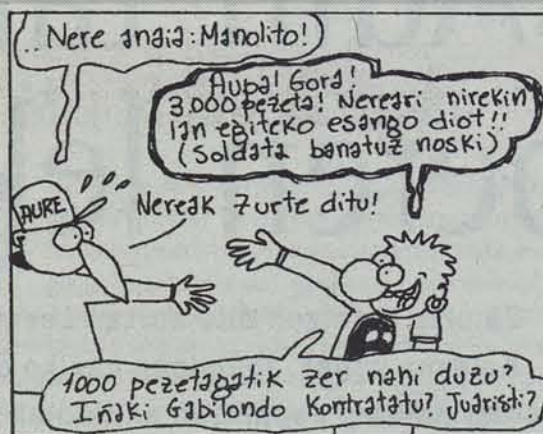 .. Nere anaia: Manolito!
Aupa! Gora!
3.000 pezeta! Nereari nirekin
lan egiteko esango diot!!
(Soldata banatuz noski)
AURE
Nereak zurte ditu!
1000 pezetagatik zer nahi duzu?
Iñaki Gabilondo kontratatu? Juaristi?